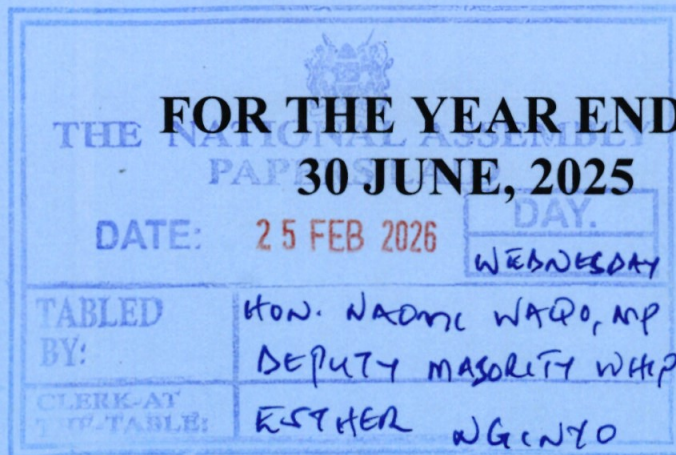 FOR THE YEAR END
THE NATIONAL ASSEMBLY
PAPERS LAID
30 JUNE, 2025
DATE: 25 FEB 2026 DAY.
WEDNESDAY
TABLED BY: HON. NAOMI WAQO, MP
DEPUTY MAJORITY WHIP
CLERK-AT THE-TABLE: ESTHER NGINYO